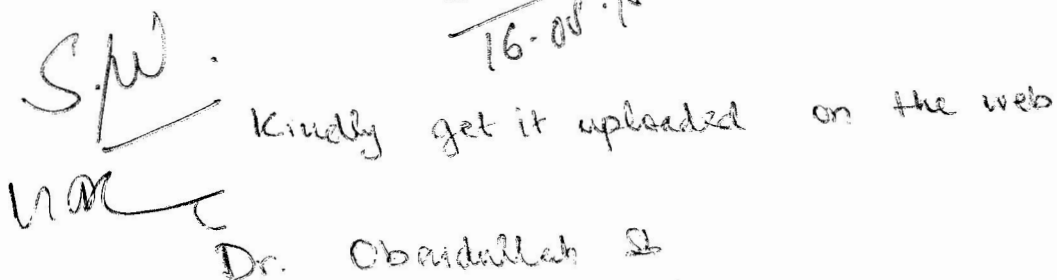 16.08.
S.W.
Kindly get it uploaded on the web
Dr. Obaidullah Sb